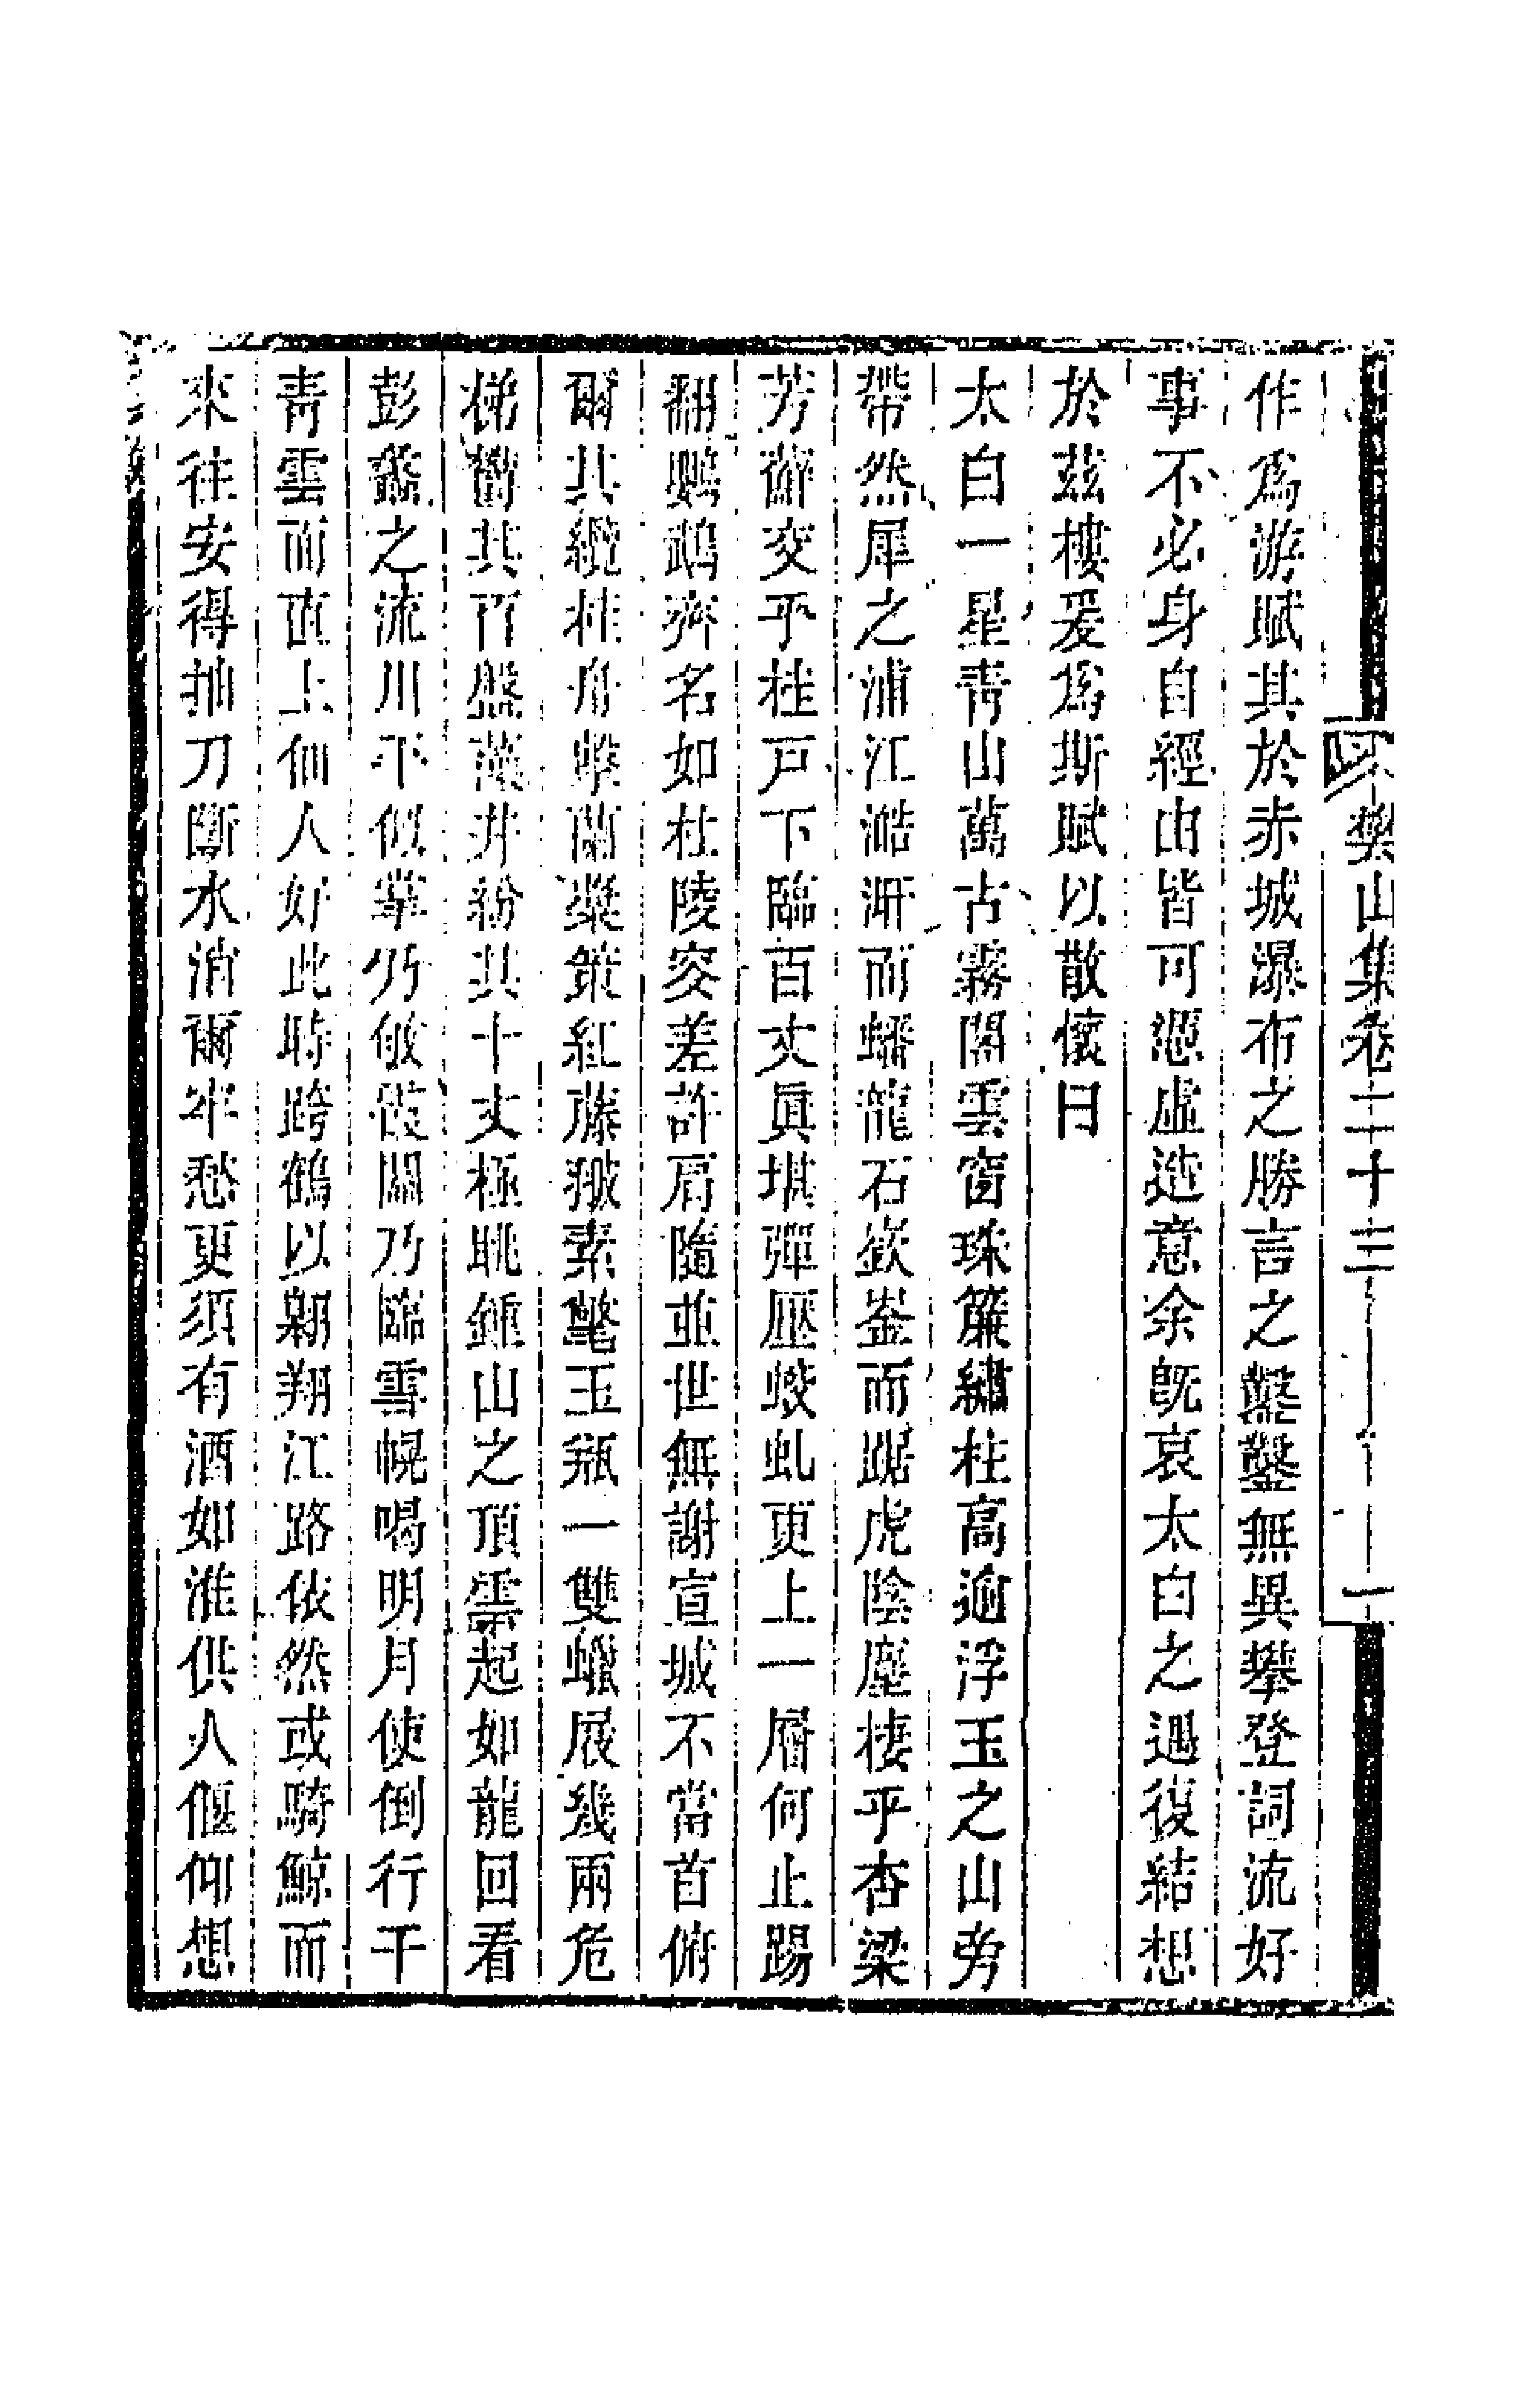 樊山集卷二十三 一
作爲游賦其於赤城瀑布之勝言之鑿鑿無異攀登詞流好
事不必身自經由皆可憑虛造意余旣哀太白之遇復結想
於茲樓爰爲斯賦以散懷曰
太白一星靑山萬古霧閣雲窗珠簾繡柱高逾浮玉之山旁
帶然犀之浦江澔汧而蟠龍石嶔崟而踞虎陰塵棲乎杏梁
芳蘚交乎桂戸下臨百丈眞堪彈壓蛟虬更上一層何止踢
翻鸚鵡齊名如杜陵突差許肩隨並世無謝宣城不當首俯
爾其纜桂舟檥蘭槳策紅藤披素氅玉瓶一雙蠟展幾兩危
梯礐其百盤藻井紛其十丈極眺鍾山之頂霛起如龍回看
彭蠡之流川平似掌乃敞設關乃臨雪幌喝明月使倒行干
靑雲而直上仙人好此時跨鶴以翱翔江路依然或騎鯨而
來往安得抽刀斷水消爾牢愁更須有酒如淮供人偃仰想